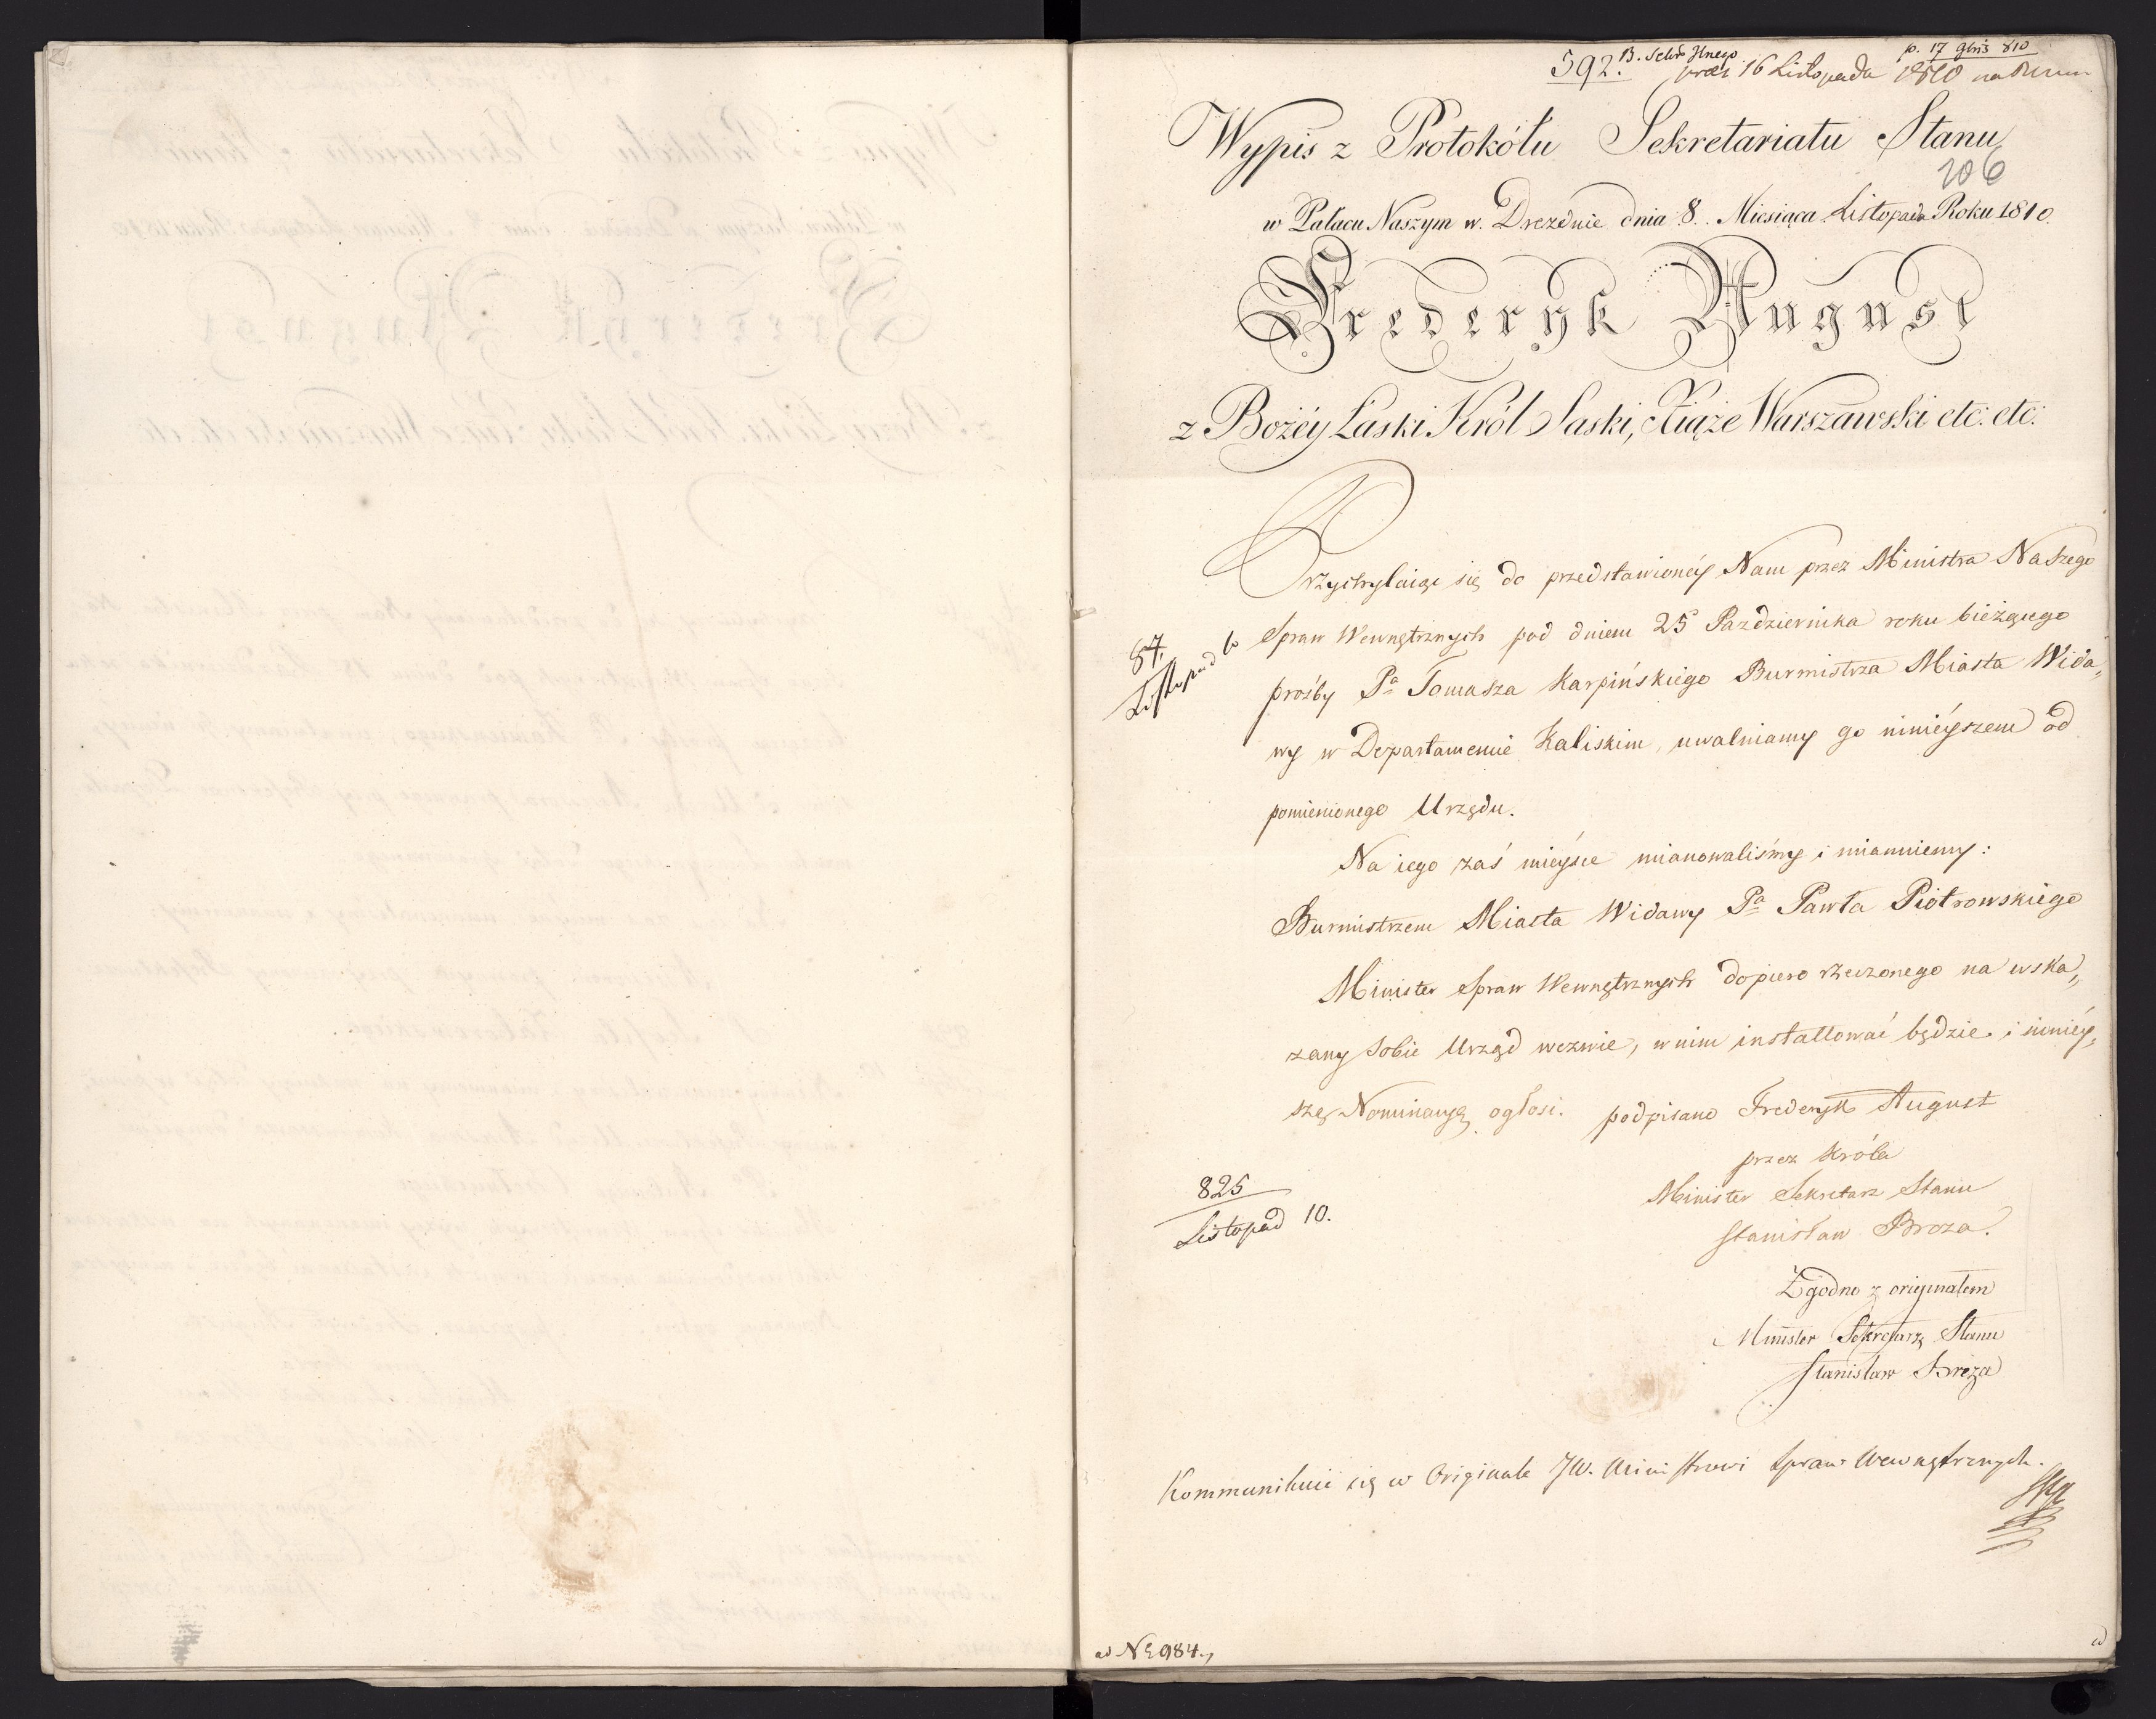 592. p. 17 9bris 810
16 Listopada 1810
Wypis z Protokółu Sekretariatu Stanu
206
w Pałacu Naszym w Dreznie dnia 8. Miesiąca Listopada Roku 1810.
Fryderyk August
z Bożéy Łaski Król Saski, Xiąże Warszawski etc. etc.
Przychylaiąc się do przedstawionéy Nam przez Ministra Naszego
Spraw Wewnętrznych pod dniem 25 Pazdziernika roku bieżącego
87.
Listopad
prośby Pa Tomasza Karpińskiego Burmistrza Miasta Wida„
wy w Departamencie Kaliskim, uwalniamy go ninieyszem od
pomienionego Urzędu.
Na iego zaś mieysce mianowaliśmy i mianuiemy:
Burmistrzem Miasta Widawy Pa Pawła Piotrowskiego
Minister Spraw Wewnętrznych dopiero rzeczonego na wska„
zany sobie Urząd wezwie, w nim installować będzie i niniéy„
szą Nominacyą ogłosi. podpisano Frederyk August
przez Króla
825
Listopad 10.
Minister Sekretarz Stanu
Stanisław Breza.
Zgodno z originałem
Minister Sekretarz Stanu
Stanisław Breza
Kommunikuie się w Originale JW. Ministrowi Spraw Wewnętrznych.
ad N 984.